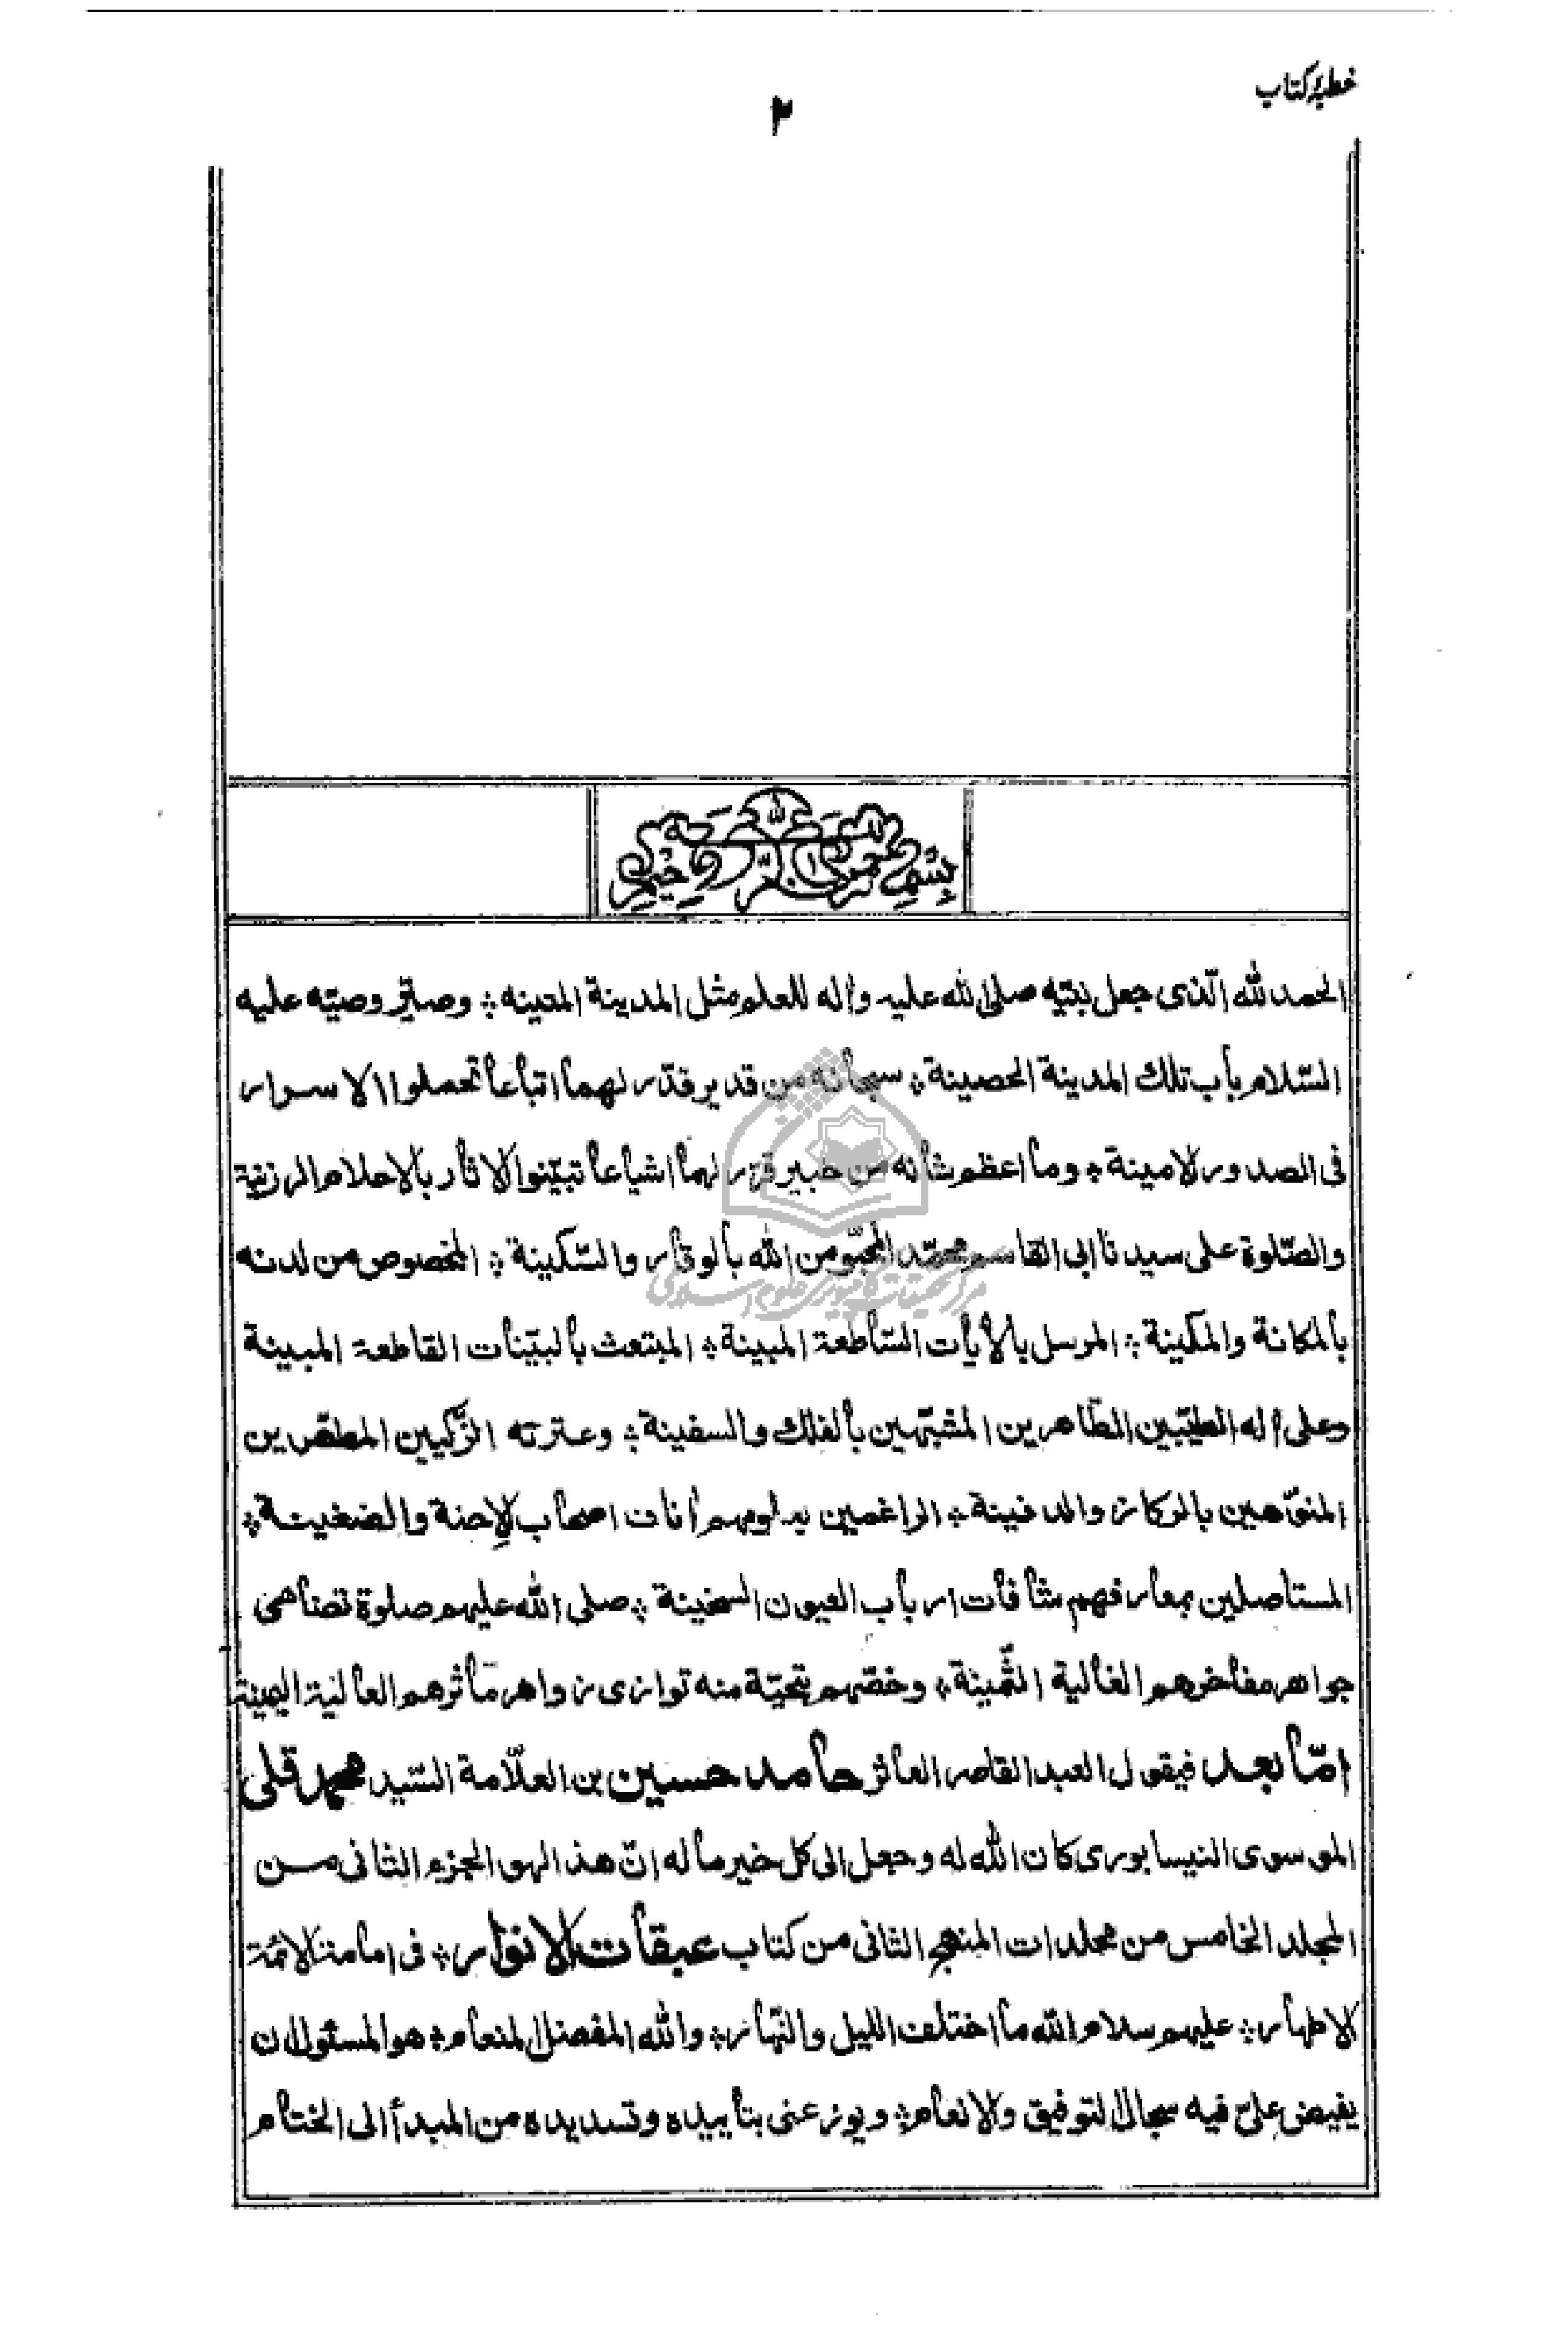 خطبۀ کتاب
۲
بسم الله الرحمن الرحيم
الحمد لله الّذى جعل نبيّه صلى الله عليه واٰله للعلم مثل المدينة المدينه ٭ وصيّر وصيّه عليه
السّلام باب تلك المدينة الحصينة ٭ سبحانه من قدير قدّر لهما اتباعا تحملوا الاسرار
فى الصدور الامينة ٭ وما اعظم شانه من خبير قرّر لهما اشياعا تبيّنوا الاثار بالاحلام الرزينة
والصّلوة على سيدنا ابى القاسم محمّد المحبّو من الله بالوقار والسّكينة ٭ المخصوص من لدنه
بالمكانة والمكينة ٭ المرسل بالأيات السّاطعة المبينة ٭ المبتعث بالبيّنات القاطعة المبينة
وعلى اٰله الطيّبين الطّاهرين المشبّهين بالفلك والسفينة ٭ وعترته الزّكيين المطهّرين
المنوّهين بالركاز والدفينة ٭ الراغمين بعلومهم أناف اصحاب الإحنة والضغينة ٭
المستاصلين بمعارفهم شأفات ارباب العيون السخينة ٭ صلى الله عليهم صلوة تضاهى
جواهر مفاخرهم الغالية الثّمينة ٭ وخصّهم بتحيّة منه توازى زواهر مآثرهم العالية اليمينة
امّا بعد فيقول العبد القاصر العاثر حامد حسين بن العلّامة السّيد محمد قلى
الموسوى النيسابورى كان الله له وجعل الى كل خير مآله انّ هذا لهو الجزء الثانى من
المجلد الخامس من مجلدات المنهج الثانى من كتاب عبقات الانوار ٭ فى امامة الائمّة
الاطهار ٭ عليهم سلام الله ما اختلف الليل والنّهار ٭ والله المفضل المنعام ٭ هو المسئول ان
يفيض علىّ فيه سجال التوفيق والانعام ٭ ويوزعنى بتأييده وتسديده من المبدأ الى الختام
مرکز تحقیقات کامپیوتری علوم اسلامی